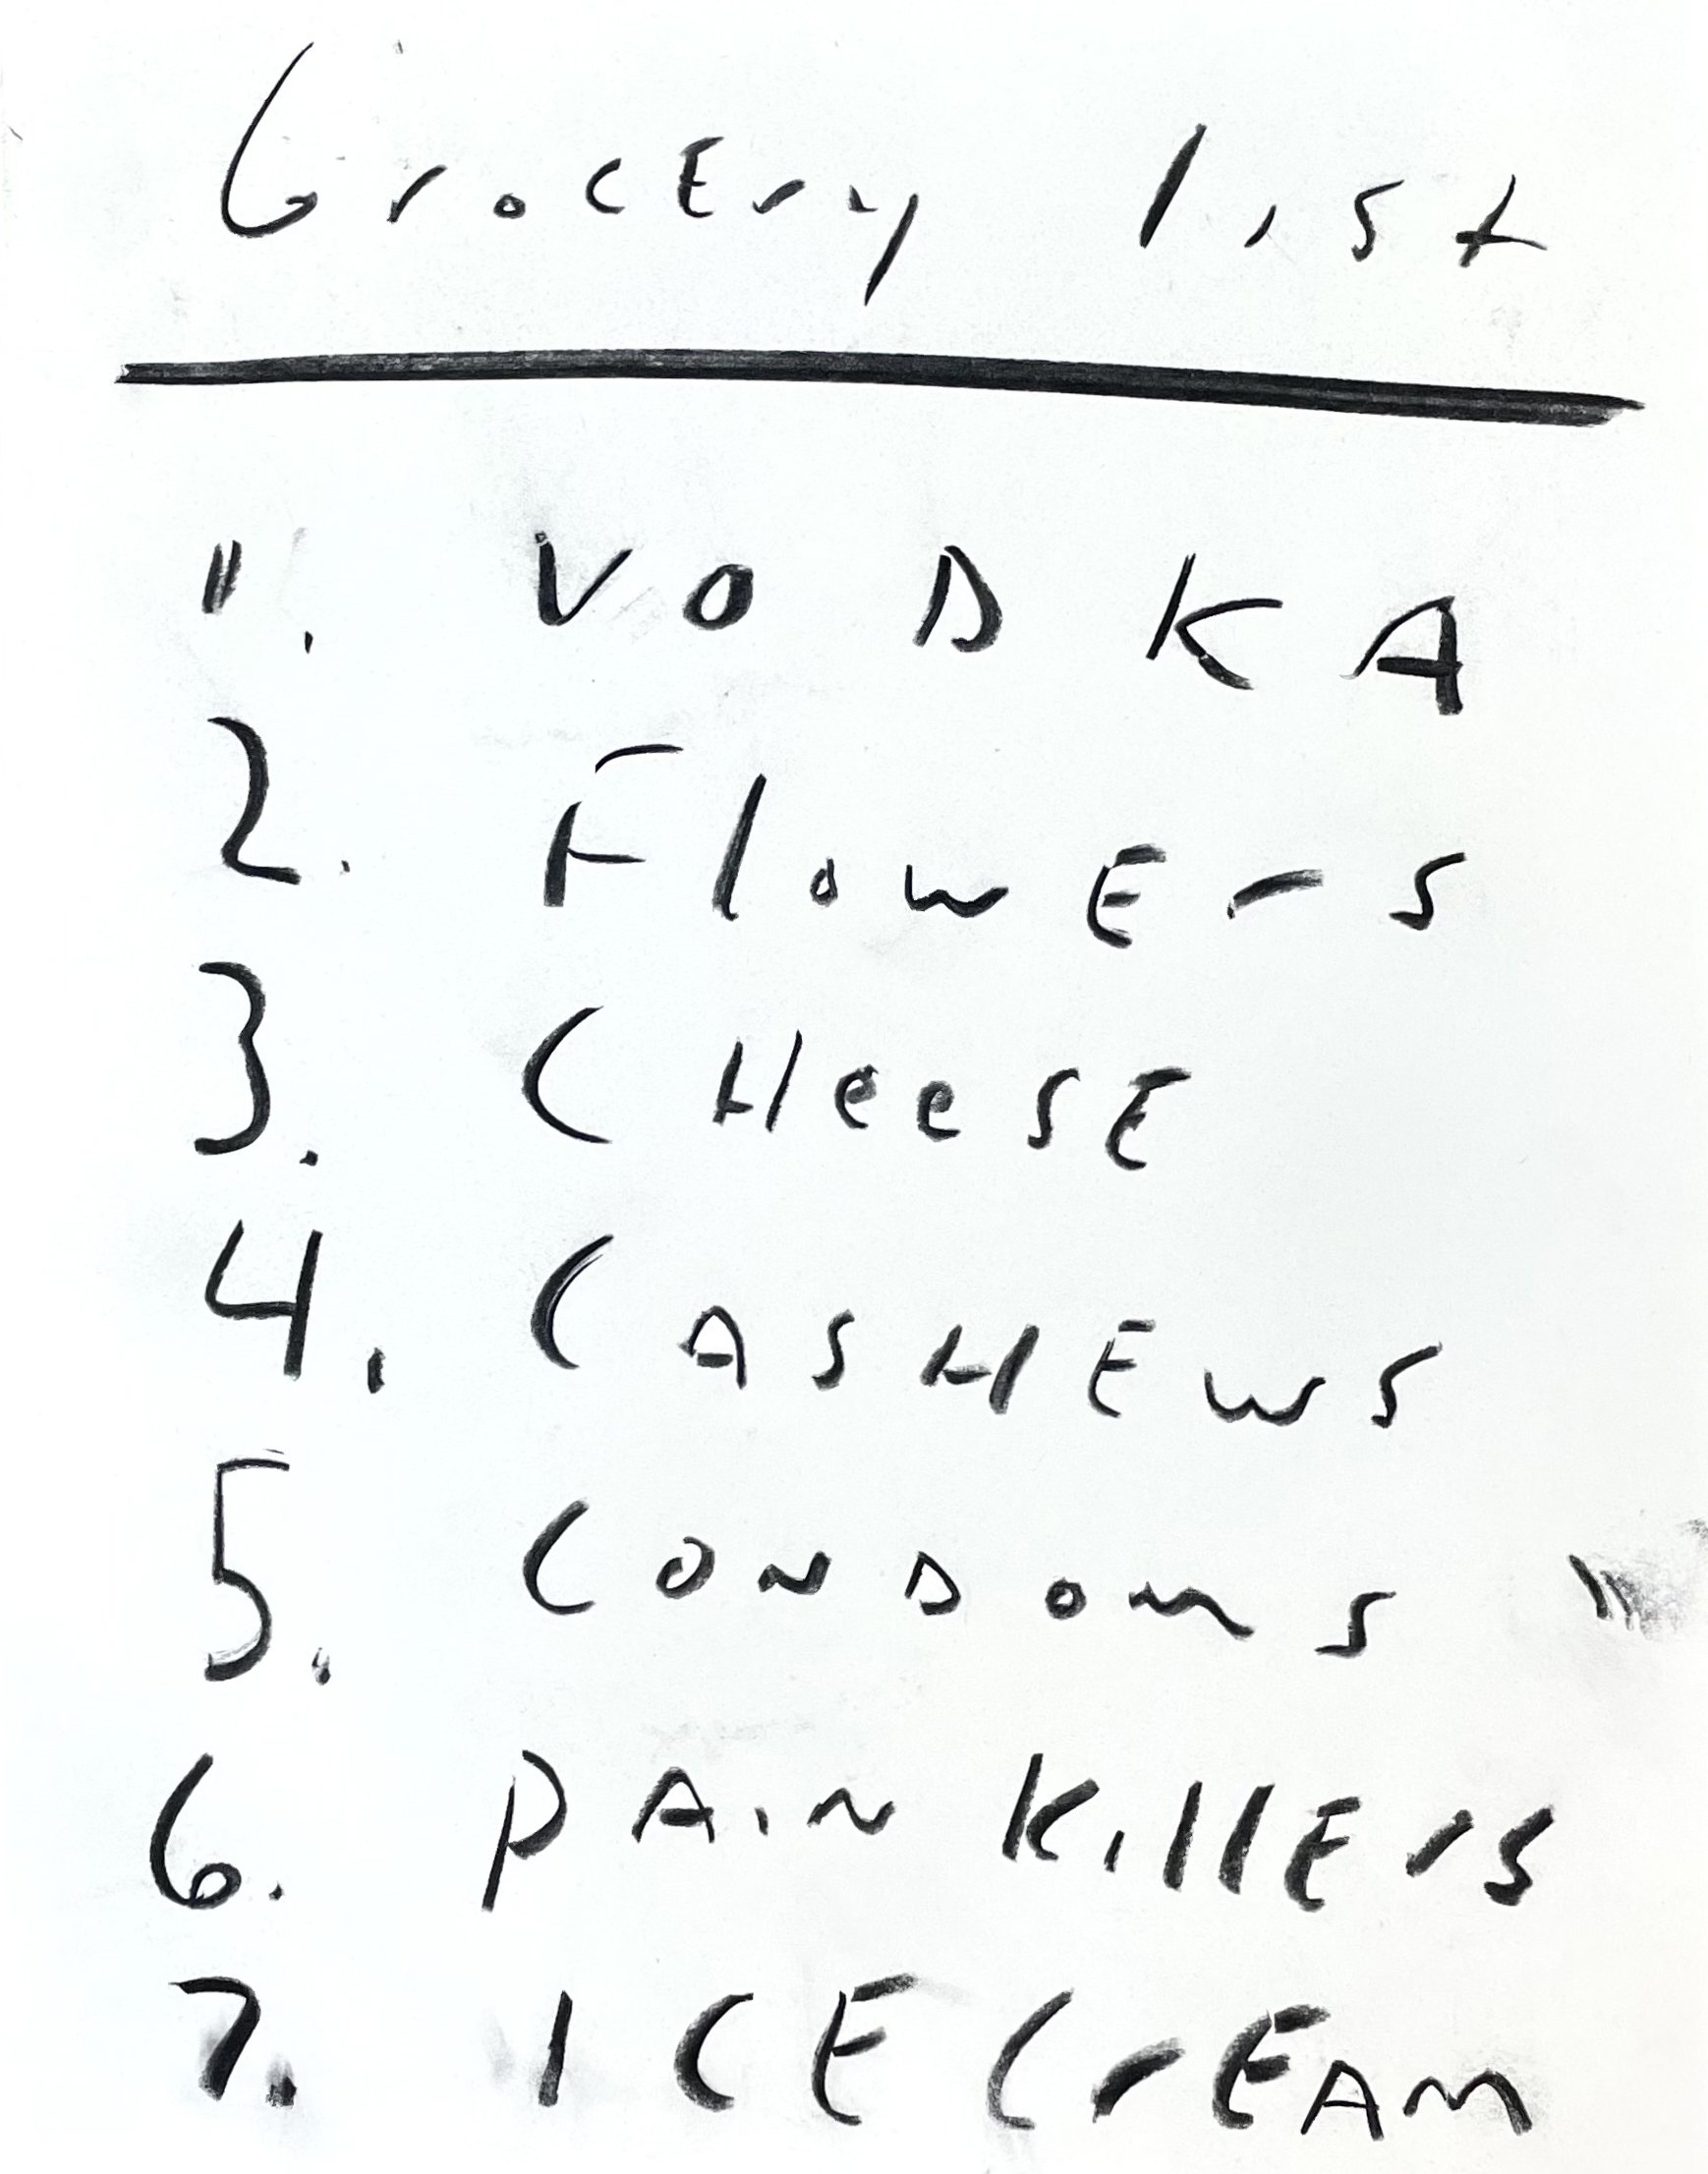 Grocery list
1. VODKA
2. Flowers
3. CHeesE
4. CASHEWS
5. CONDOMS
6. PAiN KillErs
7. ICE CrEAM